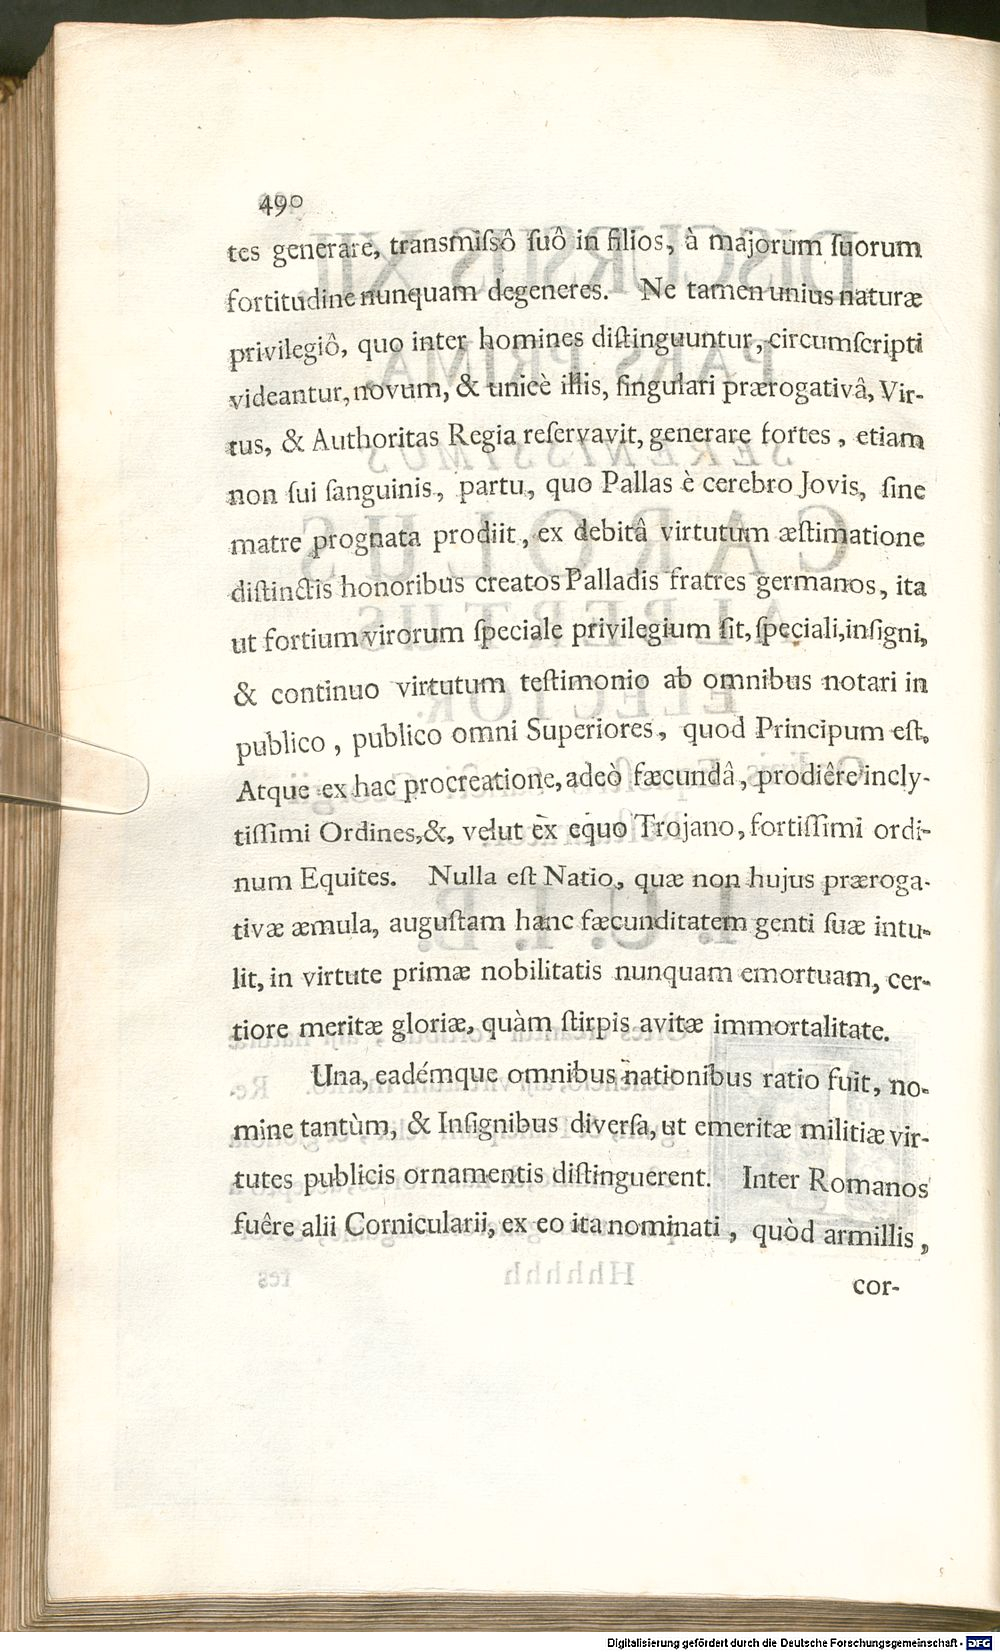 490
tes generare, transmiſsô ſuô in filios, à majorum ſuorum
fortitudine nunquam degeneres. Ne tamen unius naturæ
privilegiô, quo inter homines diſtinguuntur, circumſcripti
videantur, novum, & unicè illis, ſingulari prærogativâ, Vir-
tus, & Authoritas Regia reſervavit, generare fortes, etiam
non ſui ſanguinis, partu, quo Pallas è cerebro Jovis, ſine
matre prognata prodiit, ex debitâ virtutum æſtimatione
diſtinctis honoribus creatos Palladis fratres germanos, ita
ut fortium virorum ſpeciale privilegium ſit, ſpeciali, inſigni,
& continuo virtutum teſtimonio ab omnibus notari in
publico, publico omni Superiores, quod Principum eſt.
Atque ex hac procreatione, adeò fæcundâ, prodiêre incly-
tiſſimi Ordines, &, velut ex equo Trojano, fortiſſimi ordi-
num Equites. Nulla eſt Natio, quæ non hujus præroga-
tivæ æmula, auguſtam hanc fæcunditatem genti ſuæ intu-
lit, in virtute primæ nobilitatis nunquam emortuam, cer-
tiore meritæ gloriæ, quàm ſtirpis avitæ immortalitate.
Una, eadémque omnibus nationibus ratio fuit, no-
mine tantùm, & Inſignibus diverſa, ut emeritæ militiæ vir-
tutes publicis ornamentis diſtinguerent. Inter Romanos
fuêre alii Cornicularii, ex eo ita nominati, quòd armillis,
cor-
Digitalisierung gefördert durch die Deutsche Forschungsgemeinschaft - DFG